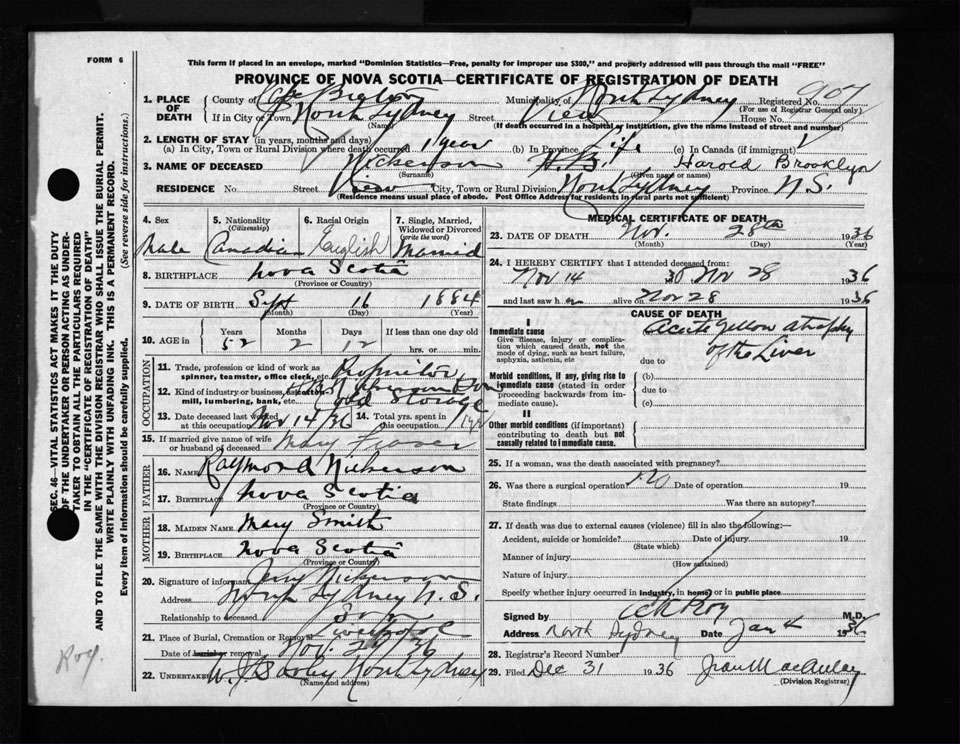 FORM 6
This form if placed in an envelope, marked "Dominion Statistics—Free, penalty for improper use $300," and properly addressed will pass through the mail "FREE"
PROVINCE OF NOVA SCOTIA—CERTIFICATE OF REGISTRATION OF DEATH
907
1. PLACE OF DEATH
County of Cape Breton Municipality of North Sydney Registered No.
(For use of Registrar General only)
If in City or Town North Sydney Street View House No.
(Name) (If death occurred in a hospital or institution, give the name instead of street and number)
2. LENGTH OF STAY (in years, months and days)
(a) In City, Town or Rural Division where death occurred 1 year (b) In Province Life (c) In Canada (if immigrant)
3. NAME OF DECEASED Nickerson H.B. Harold Brooklyn
(Surname) (Given name or names)
RESIDENCE No. Street View City, Town or Rural Division North Sydney Province N.S.
(Residence means usual place of abode. Post Office Address for residents in rural parts not sufficient)
4. Sex Male
5. Nationality (Citizenship) Canadian
6. Racial Origin English
7. Single, Married, Widowed or Divorced (write the word) Married
8. BIRTHPLACE Nova Scotia
(Province or Country)
9. DATE OF BIRTH Sept 16 1884
(Month) (Day) (Year)
10. AGE in Years Months Days If less than one day old
52 2 12 hrs. or min.
OCCUPATION
11. Trade, profession or kind of work as spinner, teamster, office clerk, etc. Proprietor
12. Kind of industry or business, as cotton mill, lumbering, bank, etc. Cold Storage
13. Date deceased last worked at this occupation Nov 14/36 14. Total yrs. spent in this occupation 1 yr
15. If married give name of wife or husband of deceased Mary Fraser
FATHER
16. NAME Raymond Nickerson
17. BIRTHPLACE Nova Scotia
(Province or Country)
MOTHER
18. MAIDEN NAME Mary Smith
19. BIRTHPLACE Nova Scotia
(Province or Country)
20. Signature of informant Nickerson
Address North Sydney N.S.
Relationship to deceased Son
21. Place of Burial, Cremation or Removal Liverpool
Date of burial or removal Nov. 29/36
22. UNDERTAKER North Sydney
(Name and address)
MEDICAL CERTIFICATE OF DEATH
23. DATE OF DEATH Nov. 28th 1936
(Month) (Day) (Year)
24. I HEREBY CERTIFY that I attended deceased from:
Nov 14 36 to Nov 28 1936
and last saw him alive on Nov 28 1936
CAUSE OF DEATH
I
Immediate cause
Give disease, injury or complication which caused death, not the mode of dying, such as heart failure, asphyxia, asthenia, etc
Acute Yellow atrophy
of the Liver
due to
Morbid conditions, if any, giving rise to immediate cause (stated in order proceeding backwards from immediate cause).
(b)
due to
(c)
II
Other morbid conditions (if important) contributing to death but not causally related to immediate cause.
25. If a woman, was the death associated with pregnancy?
26. Was there a surgical operation? no Date of operation 19
State findings Was there an autopsy?
27. If death was due to external causes (violence) fill in also the following:—
Accident, suicide or homicide? Date of injury 19
(State which)
Manner of injury
(How sustained)
Nature of injury
Specify whether injury occurred in industry, in home, or in public place
Signed by Roy M.D.
Address North Sydney Date Jan 4 1936
28. Registrar's Record Number
29. Filed Dec 31 1936 Jean MacAulay
(Division Registrar)
SEC. 46—VITAL STATISTICS ACT MAKES IT THE DUTY
OF THE UNDERTAKER OR PERSON ACTING AS UNDER-
TAKER TO OBTAIN ALL THE PARTICULARS REQUIRED
IN THE "CERTIFICATE OF REGISTRATION OF DEATH"
AND TO FILE THE SAME WITH THE DIVISION REGISTRAR WHO SHALL ISSUE THE BURIAL PERMIT.
WRITE PLAINLY WITH UNFADING INK. THIS IS A PERMANENT RECORD.
Every item of information should be carefully supplied. (See reverse side for instructions.)
Roy.